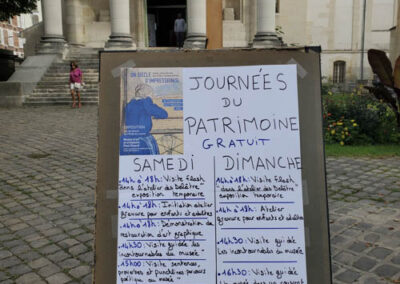 UN SIÈCLE
D'IMPRESSIONS
JOURNÉES
DU
PATRIMOINE
GRATUIT
SAMEDI
14h à 18h: Visite flash
"dans l'atelier des Delâtre"
exposition temporaire
14h à 18h: Initiation atelier
gravure pour enfants et adultes
14h à 18h: Démonstration de
restauration d'art graphique
14h30: Visite guidée les
incontournables du musée
15h00: Visite sentences,
proverbes et punchlines parcours
politique au musée
DIMANCHE
14h à 18h: Visite flash
"dans l'atelier des Delâtre"
exposition temporaire
14h à 18h: Atelier
gravure pour enfants et adultes
14h30: Visite guidée
les incontournables du musée
16h30: Visite guidée